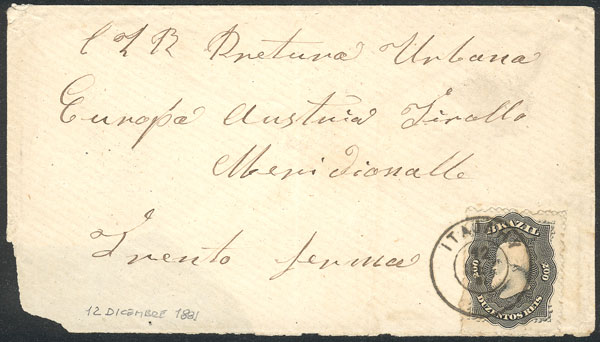 C L R Pretura Urbana
Europa Austria Tirollo
Meridionalle
Trento ferma
12 DICEMBRE 1881
BRAZIL
200 200
DUZENTOS REIS
12